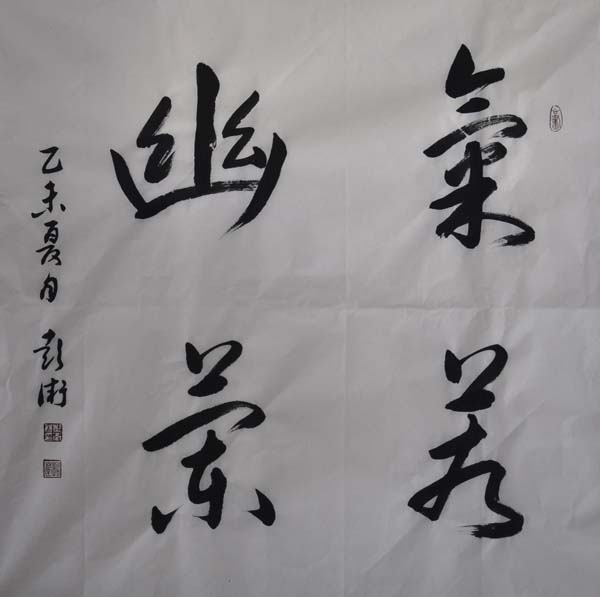 氣若
幽蘭
乙未夏月 彭衛